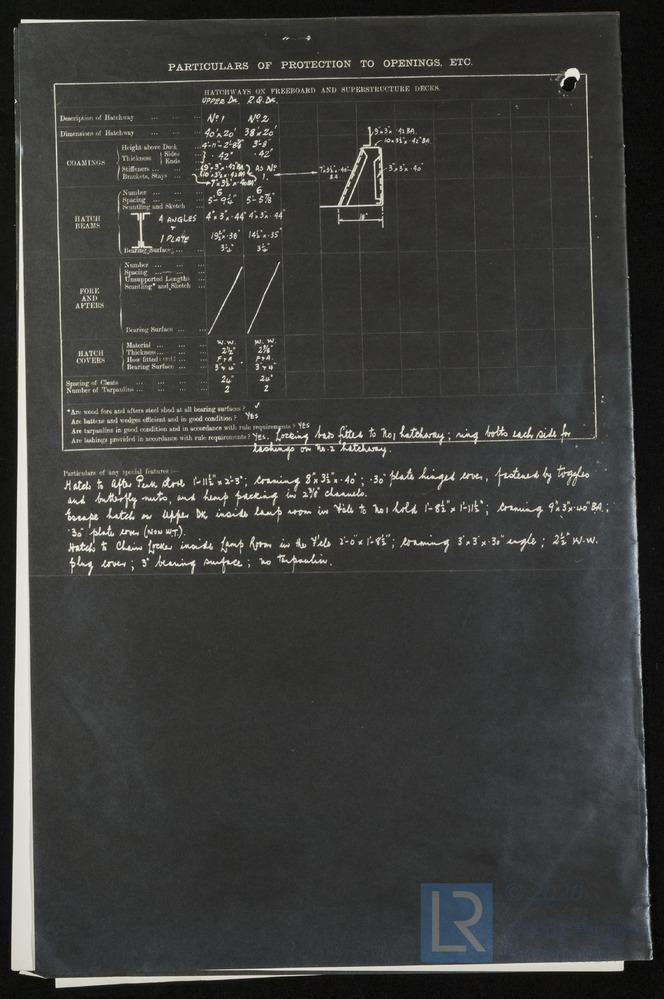 PARTICULARS OF PROTECTION TO OPENINGS, ETC.
HATCHWAYS ON FREEBOARD AND SUPERSTRUCTURE DECKS.
UPPER DK. R.Q.DK.
Description of Hatchway ... ... ... No 1 No 2
Dimensions of Hatchway ... ... 40' x 20' 38' x 20'
COAMINGS
Height above Deck
Thickness { Sides ... .42" .42"
{ Ends
Stiffeners ... ... 9" x 3" x .42" BA AS No
Brackets, Stays ... 10 x 3½ x .42 BA 1.
9" x 3" x .42 BA
10 x 3½ x .42" BA
3" x 3" x .40"
18"
HATCH BEAMS
Number ... ... 6 6
Spacing 5-9¼" 5-5⅞"
Scantling and Sketch
4 ANGLES 4" x 3" x .44" 4" x 3" x .44"
+
1 PLATE
Bearing Surface ... 3¼" 3¼"
FORE AND AFTERS
Number ... ...
Spacing ...
Unsupported Lengths
Scantling* and Sketch
Bearing Surface ... ...
HATCH COVERS
Material ... ... W.W. W.W.
Thickness ...
How fitted ... F+A F+A
Bearing Surface ... 3" + 4" 3" + 4"
Spacing of Cleats ... ... ... 24" 24"
Number of Tarpaulins ... ... 2 2
*Are wood fore and afters steel shod at all bearing surfaces? ✓
Are battens and wedges efficient and in good condition? YES
Are tarpaulins in good condition and in accordance with rule requirements? YES
Are lashings provided in accordance with rule requirements? YES. Locking bars fitted to No1 hatchway; ring bolts each side for
lashings on No. 2 hatchway.
Particulars of any special features:—
Hatch to After Peak store 1'-11½" x 2'-3"; coaming 8" x 3½" x .40"; .30" plate hinged cover, fastened by toggles
and butterfly nuts, and hemp packing in 2⅜" channels.
Escape hatch on Upper DK inside lamp room in F'cle to No1 hold 1'-8½" x 1'-11½"; coaming 9" x 3" x .40" BA;
.30" plate cover (NON WT).
Hatch to Chain Locker inside Lamp Room in the F'cle 2'-0" x 1'-8½"; coaming 3" x 3" x .30" angle; 2½" W.W.
plug cover; 3" bearing surface; no tarpaulin.
LR
© 2020